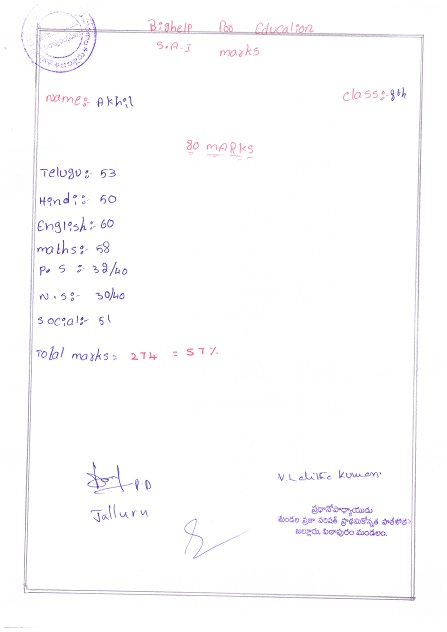 Bighelp Poo Education
S.A.I marks
Name:- Akhil
class:- 8th
80 MARKS
Telugu:- 53
Hindi:- 50
English:- 60
maths:- 58
P.S :- 32/40
N.S:- 30/40
Social:- 51
Total marks= 274 = 57%
P.D
Jalluru
N. Lalitha Kumari
ప్రధానోపాధ్యాయుడు
మండల ప్రజా పరిషత్ ప్రాథమికోన్నత పాఠశాల
జల్లూరు, పిఠాపురం మండలం.